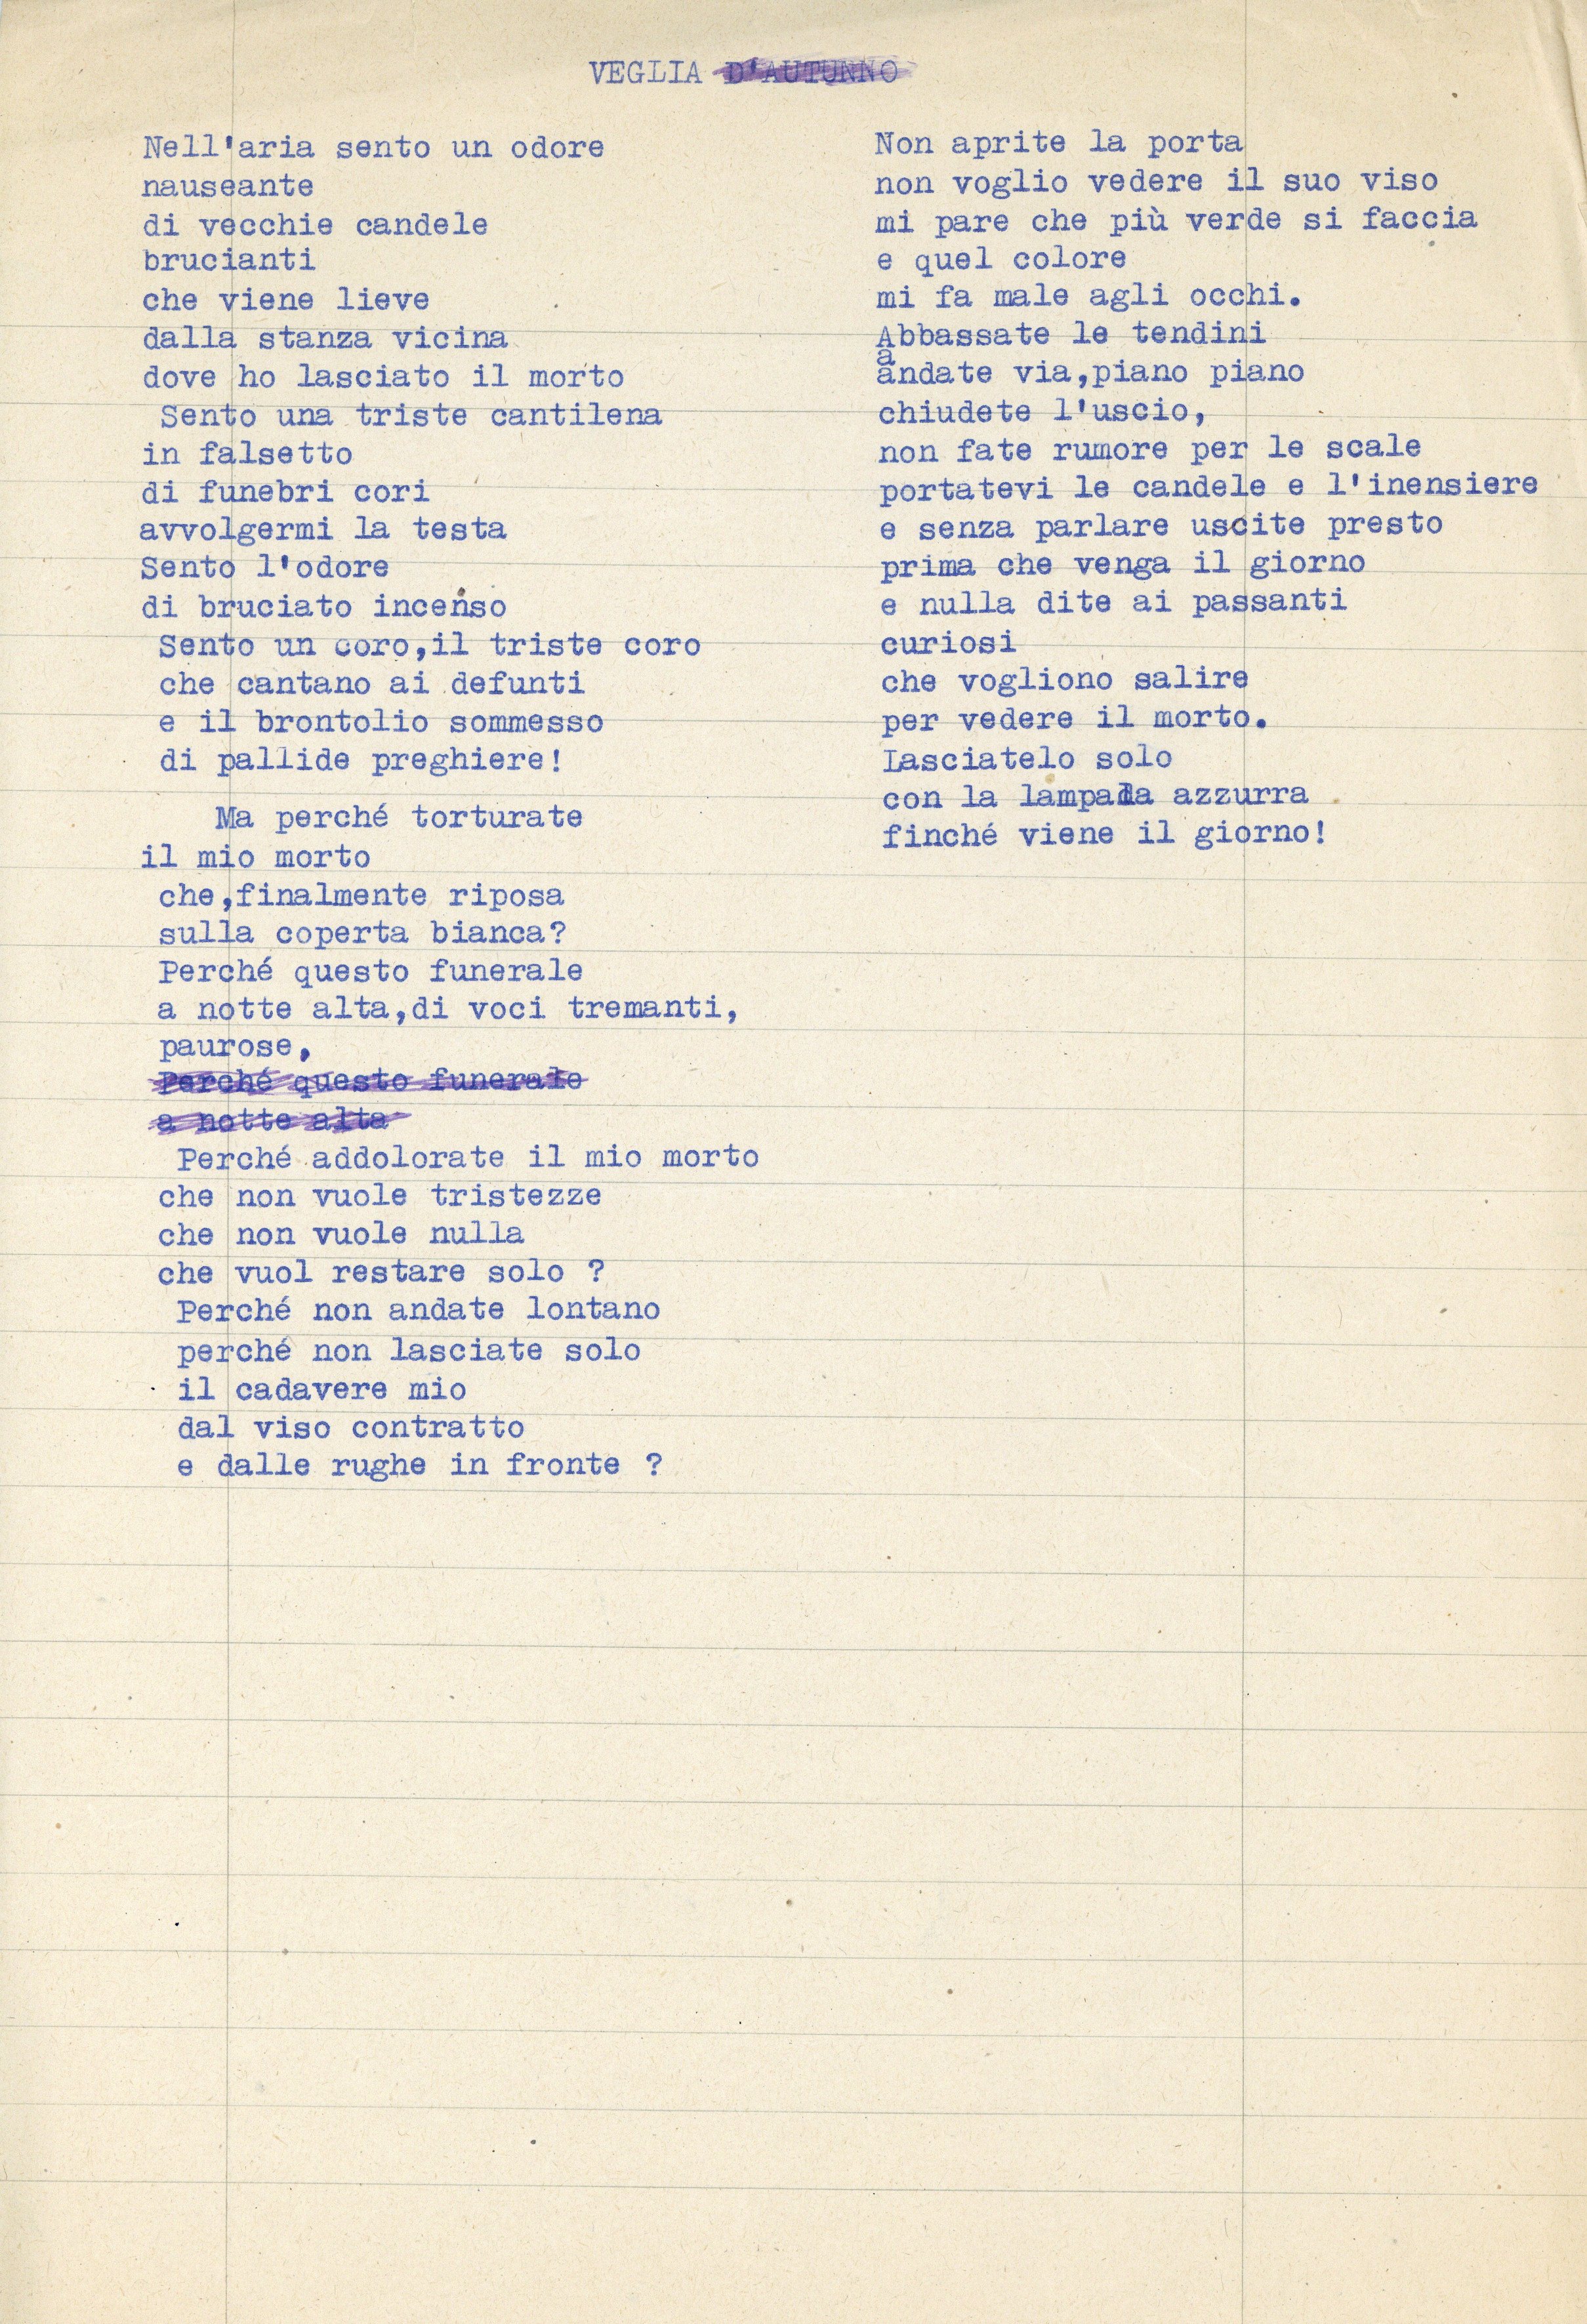 VEGLIA D'AUTUNNO
Nell'aria sento un odore
nauseante
di vecchie candele
brucianti
che viene lieve
dalla stanza vicina
dove ho lasciato il morto
Sento una triste cantilena
in falsetto
di funebri cori
avvolgermi la testa
Sento l'odore
di bruciato incenso
Sento un coro,il triste coro
che cantano ai defunti
e il brontolio sommesso
di pallide preghiere!
Ma perché torturate
il mio morto
che,finalmente riposa
sulla coperta bianca?
Perché questo funerale
a notte alta,di voci tremanti,
paurose,
Perché questo funerale
a notte alta
Perché addolorate il mio morto
che non vuole tristezze
che non vuole nulla
che vuol restare solo ?
Perché non andate lontano
perché non lasciate solo
il cadavere mio
dal viso contratto
e dalle rughe in fronte ?
Non aprite la porta
non voglio vedere il suo viso
mi pare che più verde si faccia
e quel colore
mi fa male agli occhi.
Abbassate le tendini
andate via,piano piano
chiudete l'uscio,
non fate rumore per le scale
portatevi le candele e l'inensiere
e senza parlare uscite presto
prima che venga il giorno
e nulla dite ai passanti
curiosi
che vogliono salire
per vedere il morto.
Lasciatelo solo
con la lampada azzurra
finché viene il giorno!